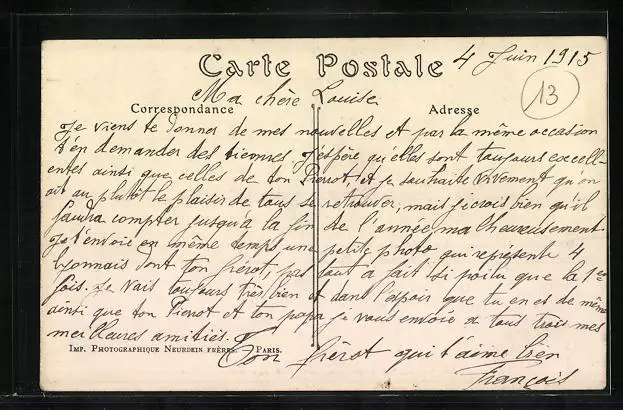 Carte Postale 4 Juin 1915
13
Ma chère Louise
Correspondance Adresse
Je viens te donner de mes nouvelles et par la même occasion
t'en demander des tiennes. J'espère qu'elles sont toujours excell-
entes ainsi que celles de ton Pierrot, et je souhaite vivement qu'on
ait au plutôt le plaisir de tous se retrouver, mais je crois bien qu'il
faudra compter jusqu'à la fin de l'année malheureusement
Je t'envoie en même temps une petite photo qui représente 4
lyonnais dont ton frérot, pas tout à fait si poilu que la 1re
fois. Je vais toujours très bien et dans l'espoir que tu en es de même
ainsi que ton Pierrot et ton papa je vous envoie à tous trois mes
meilleures amitiés.
Imp. Photographique Neurdein Frères. Paris.
Ton frérot qui t'aime bien
François